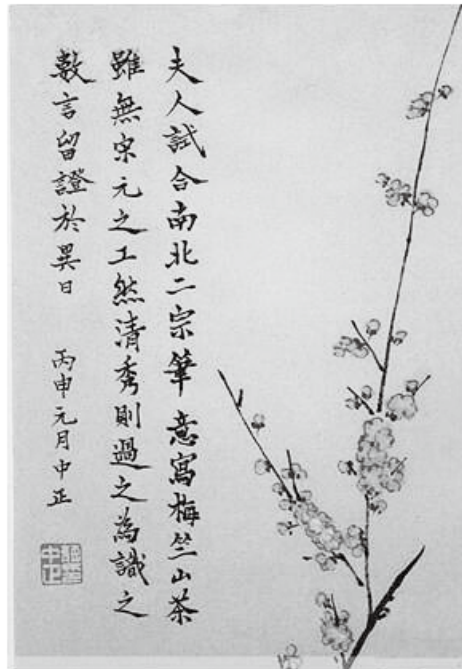 夫人試合南北二宗筆意寫梅竺山茶
雖無宋元之工然清秀則過之為識之
數言留證於異日
丙申元月中正